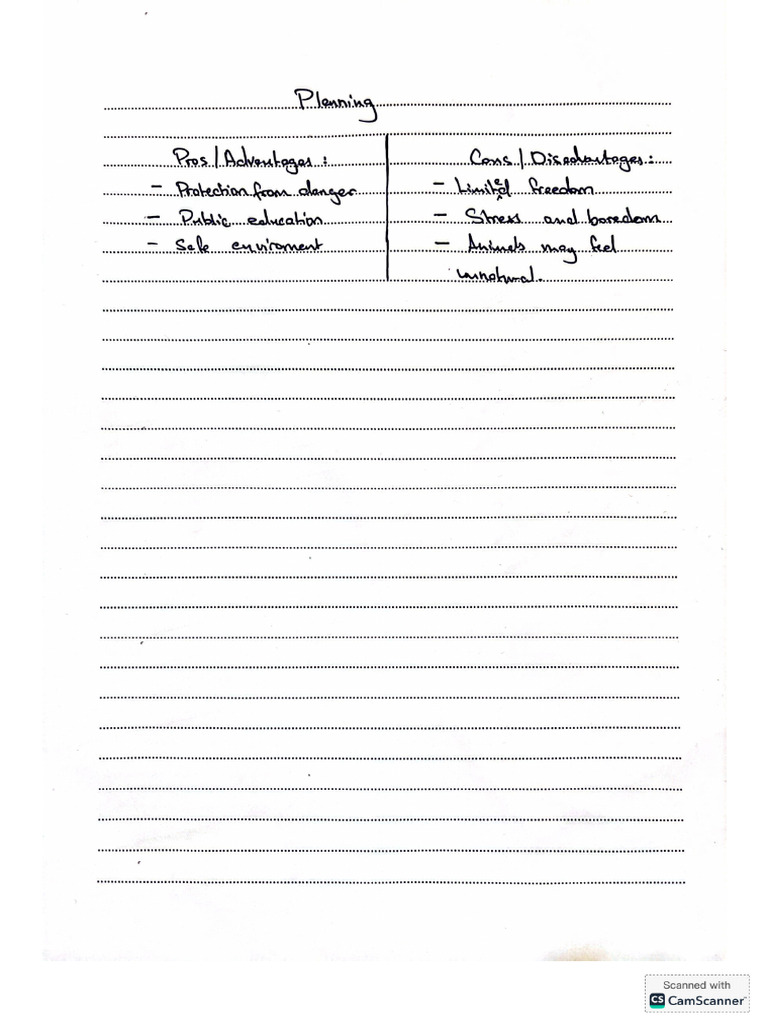 Planning
Pros/Advantages: Cons/Disadvantages:
- Protection from danger - Limited freedom
- Public education - Stress and boredom
- Safe enviroment - Animals may feel
unnatural.
Scanned with
CS CamScanner